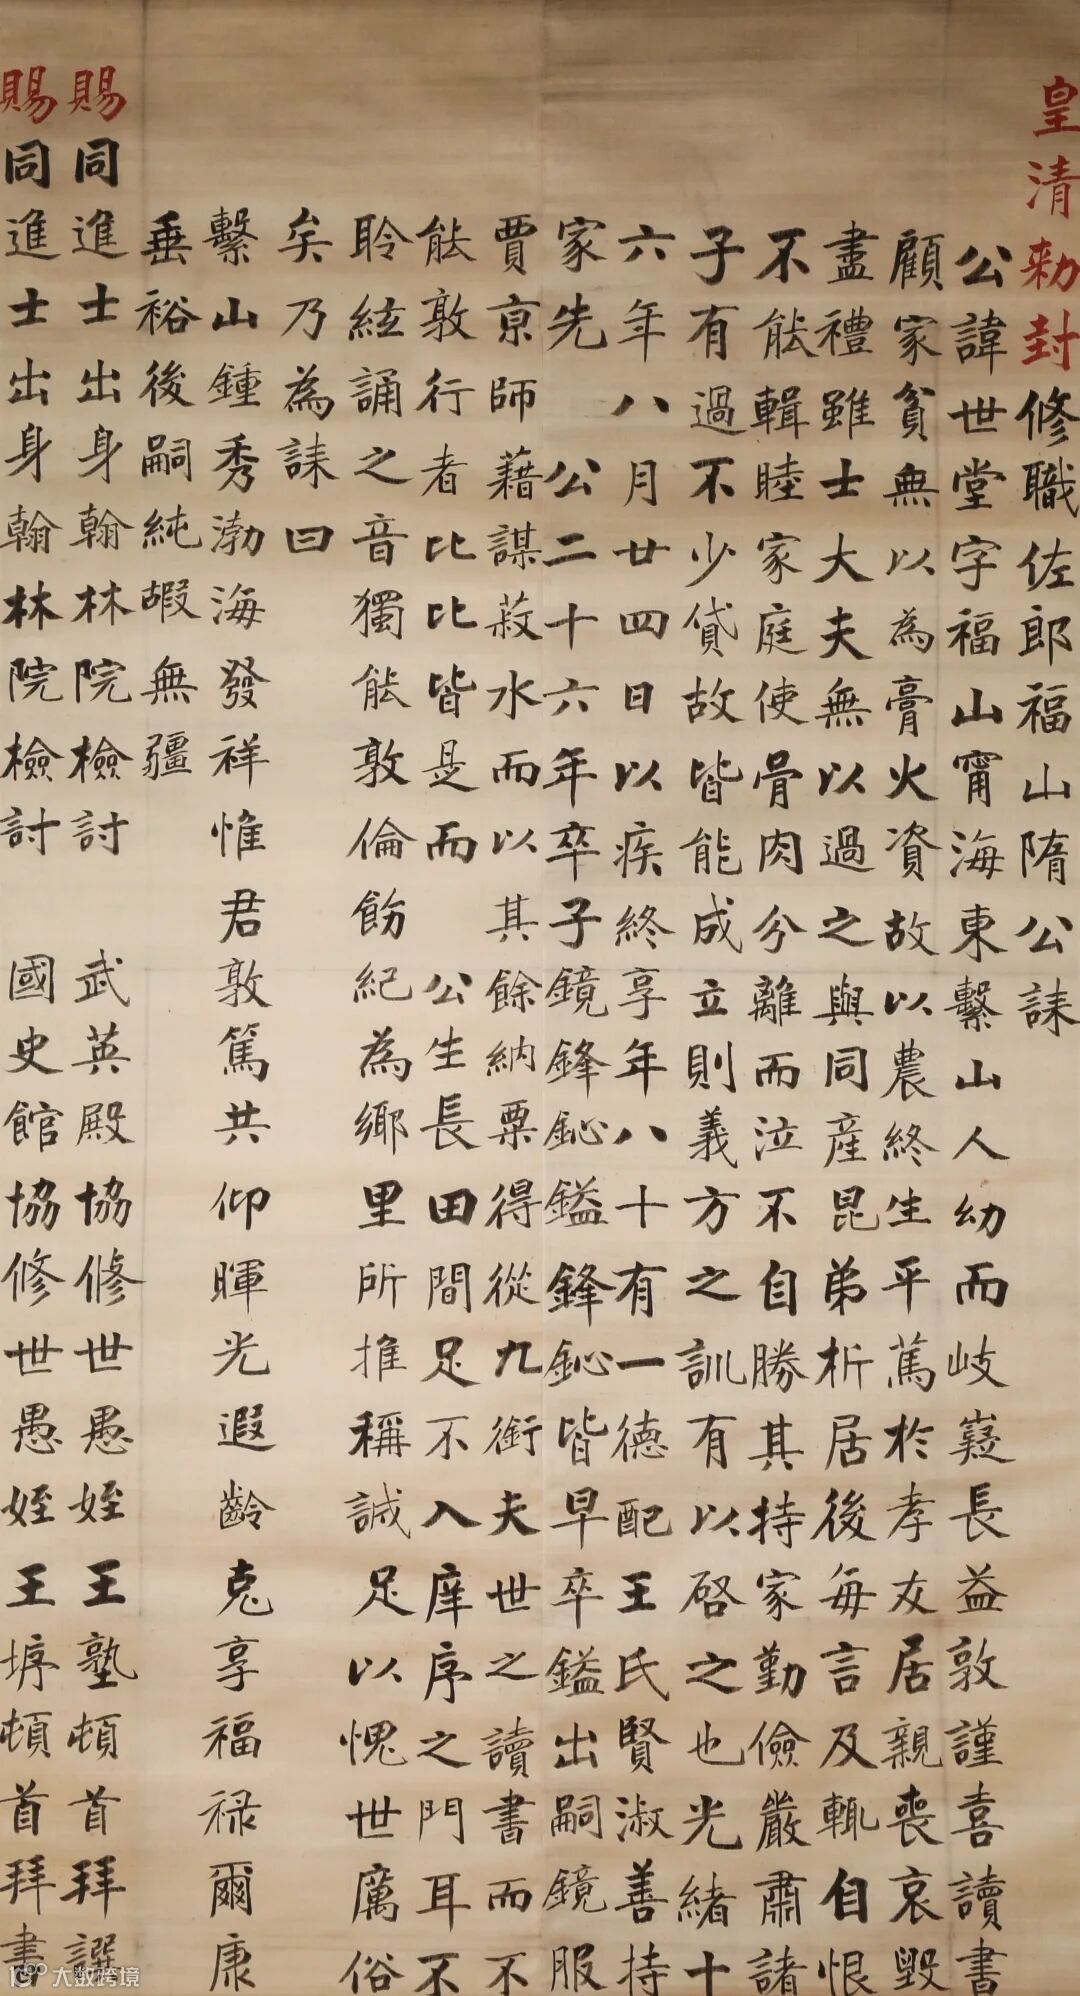 皇清勅封修職佐郎福山隋公誄
公諱世堂字福山甯海東繫山人幼而岐嶷長益敦謹喜讀書
顧家貧無以為膏火資故以農終生平篤於孝友居親喪哀毀
盡禮雖士大夫無以過之與同產昆弟析居後每言及輒自恨
不能輯睦家庭使骨肉分離而泣不自勝其持家勤儉嚴肅諸
子有過不少貸故皆能成立則義方之訓有以啓之也光緒十
六年八月廿四日以疾終享年八十有一德配王氏賢淑善持
家先公二十六年卒子鏡鋒鈊鎰鋒鈊皆早卒鎰出嗣鏡服
賈京師藉謀菽水而以其餘納粟得從九銜夫世之讀書而不
能敦行者比比皆是而公生長田間足不入庠序之門耳不
聆絃誦之音獨能敦倫飭紀為鄉里所推稱誠足以愧世厲俗
矣乃為誄曰
繫山鍾秀渤海發祥惟君敦篤共仰暉光遐齡克享福祿爾康
垂裕後嗣純嘏無疆
賜同進士出身翰林院檢討武英殿協修世愚姪王塾頓首拜譔
賜同進士出身翰林院檢討國史館協修世愚姪王垿頓首拜書
大数跨境